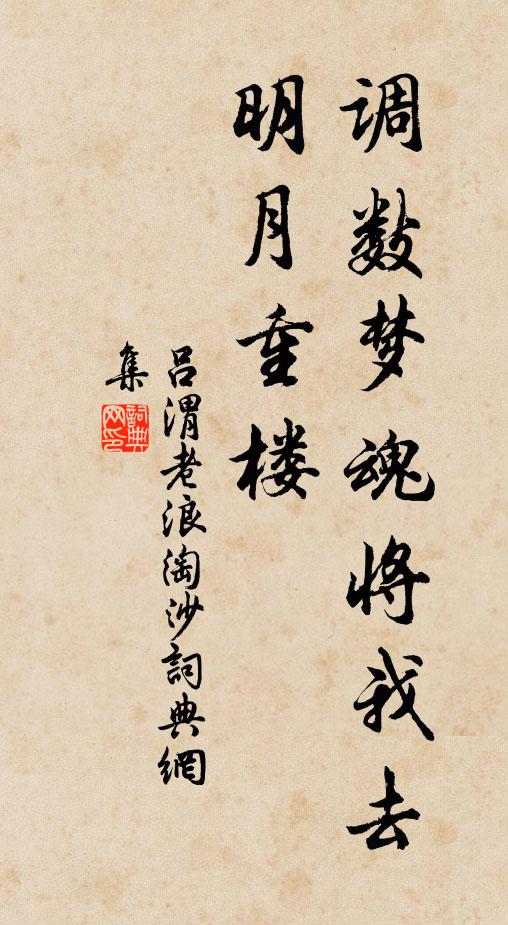 调数梦魂将我去
明月重楼
吕渭老浪淘沙詞典網
集
詞典
网印